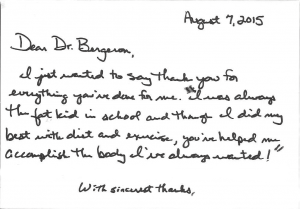 August 7, 2015
Dear Dr. Bergeron,
I just wanted to say thank you for
everything you've done for me. "I was always
the fat kid in school and though I did my
best with diet and exercise, you've helped me
accomplish the body I've always wanted!"
With sincerest thanks,